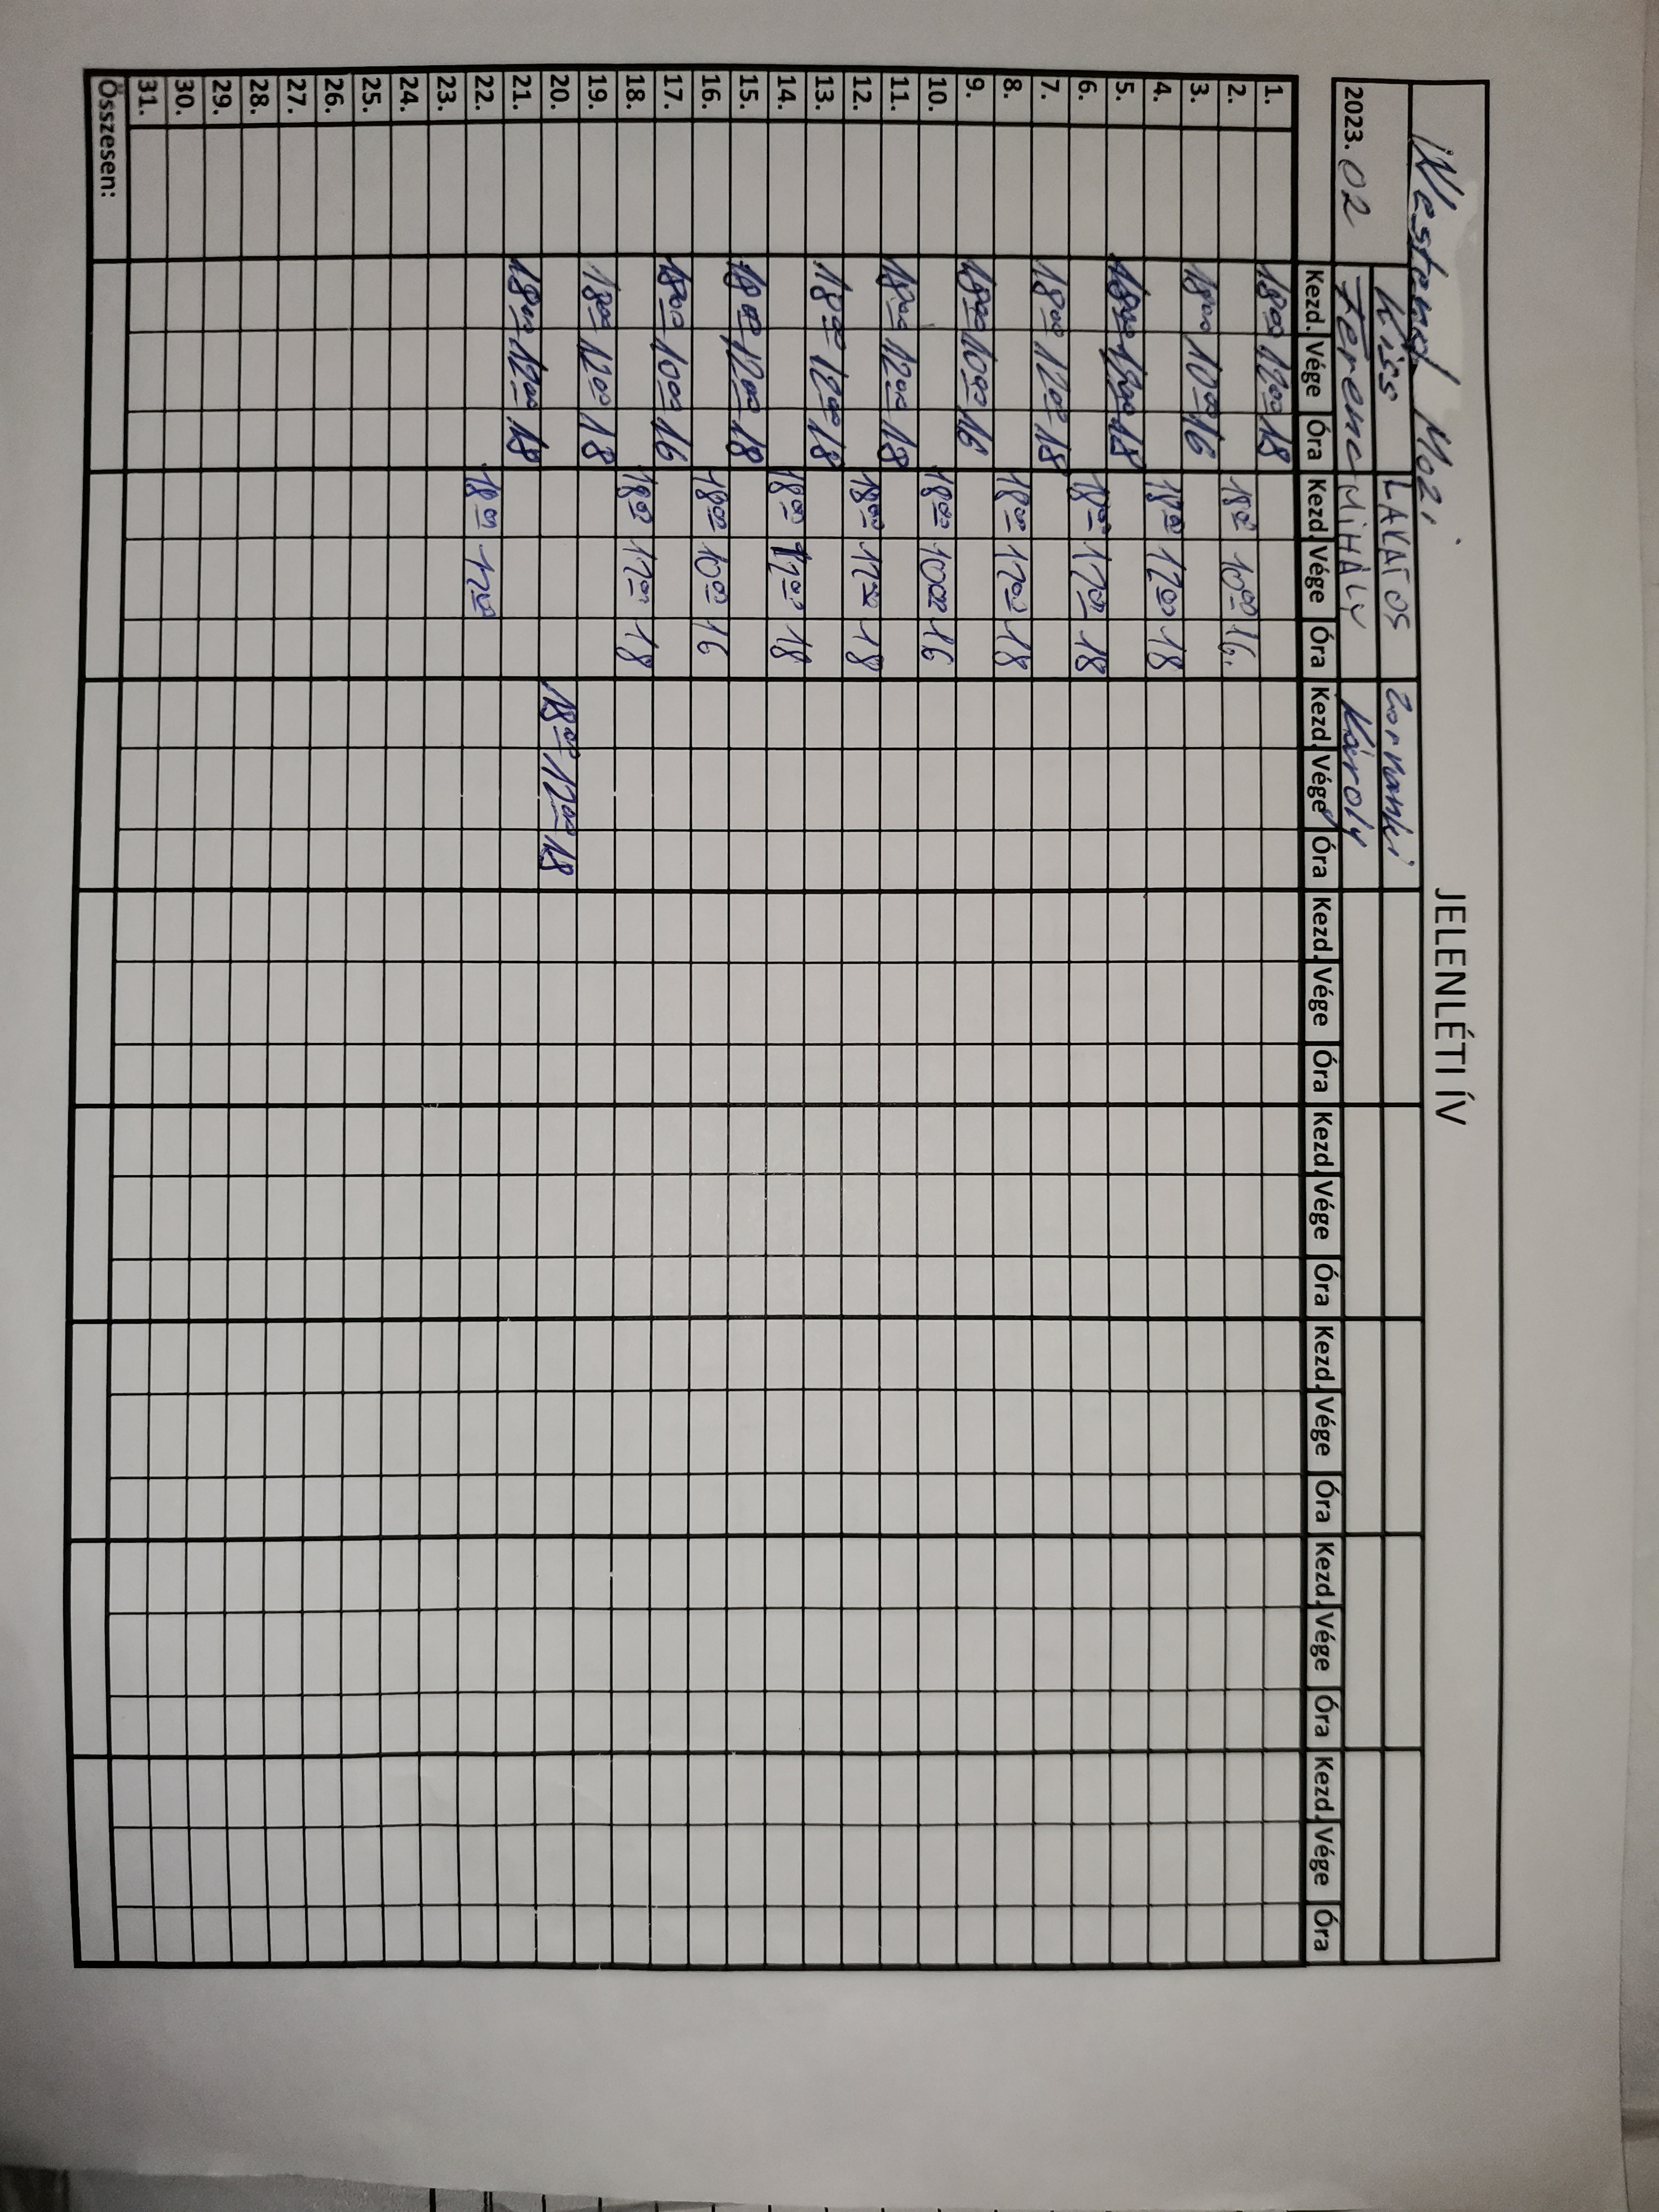 JELENLÉTI ÍV
Westend Mozi
Kiss LAKATOS
2023. 02 Ferenc MIHÁLY Károly
Kezd. Vége Óra Kezd. Vége Óra Kezd. Vége Óra Kezd. Vége Óra Kezd. Vége Óra Kezd. Vége Óra Kezd. Vége Óra Kezd. Vége Óra
1. 18 00 12 00 18
2. 18 00 10 00 16.
3. 18 00 10 00 16
4. 18 00 12 00 18
5. 18 00 12 00 18
6. 18 00 12 00 18
7. 18 00 12 00 18
8. 18 00 12 00 18
9. 18 00 10 00 16
10. 18 00 10 00 16
11. 18 00 12 00 18
12. 18 00 12 00 18
13. 18 00 12 00 18
14. 18 00 12 00 18
15. 18 00 12 00 18
16. 18 00 10 00 16
17. 18 00 10 00 16
18. 18 00 12 00 18
19. 18 00 12 00 18
20. 18 00 12 00 18
21. 18 00 12 00 18
22. 18 00 12 00
23.
24.
25.
26.
27.
28.
29.
30.
31.
Összesen: